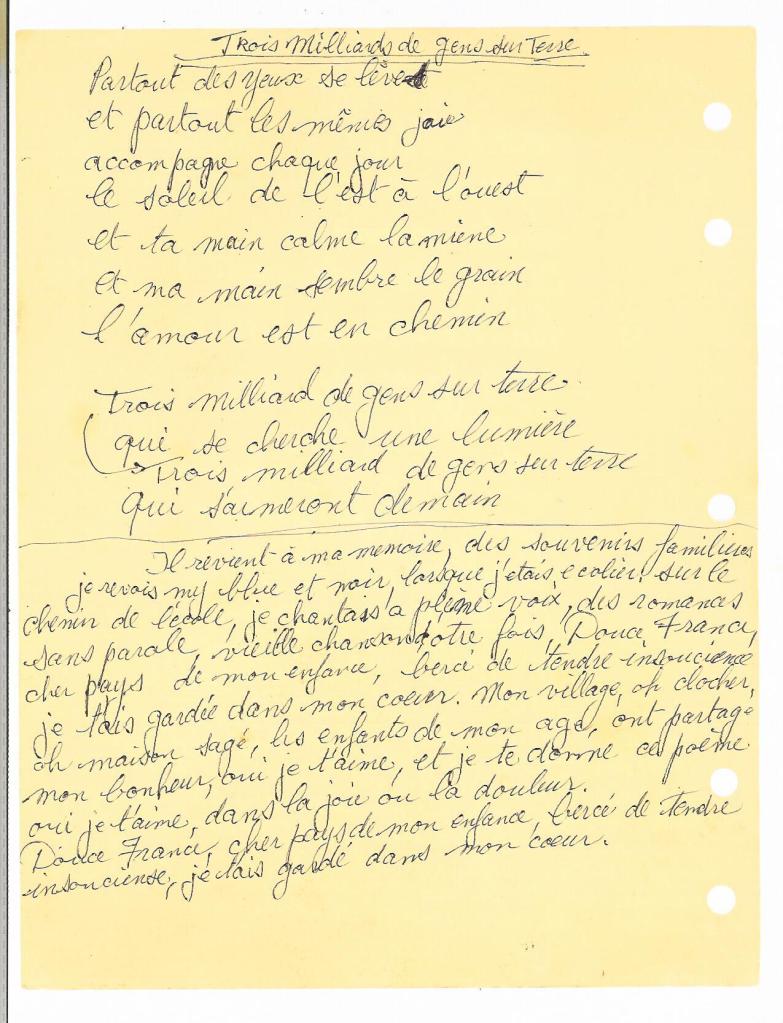 Trois Milliards de gens sur Terre
Partout des yeux se lèvent
et partout les mêmes joie
accompagne chaque jour
le soleil de l'est à l'ouest
et ta main calme la miene
et ma main sembre le grain
l'amour est en chemin
Trois milliard de gens sur terre
qui se cherche une lumière
Trois milliard de gens sur terre
qui s'aimeront demain
Il revient à ma memoire, des souvenirs familiers
je revois my blue et noir, lorsque j'etais ecolier, sur le
chemin de l'école, je chantais a pleine voix, des romances
sans parale, vieille chanson d'otre fois, Douce France,
cher pays de mon enfance, bercé de tendre insoucience
je t'ais gardée dans mon coeur. Mon village, oh clocher,
oh maison sage, les enfants de mon age, ont partagé
mon bonheur, oui je t'aime, et je te donne ce poème
oui je t'aime, dans la joie ou la douleur.
Douce France, cher pays de mon enfance, bercé de tendre
insouciense, je t'ais gardé dans mon coeur.